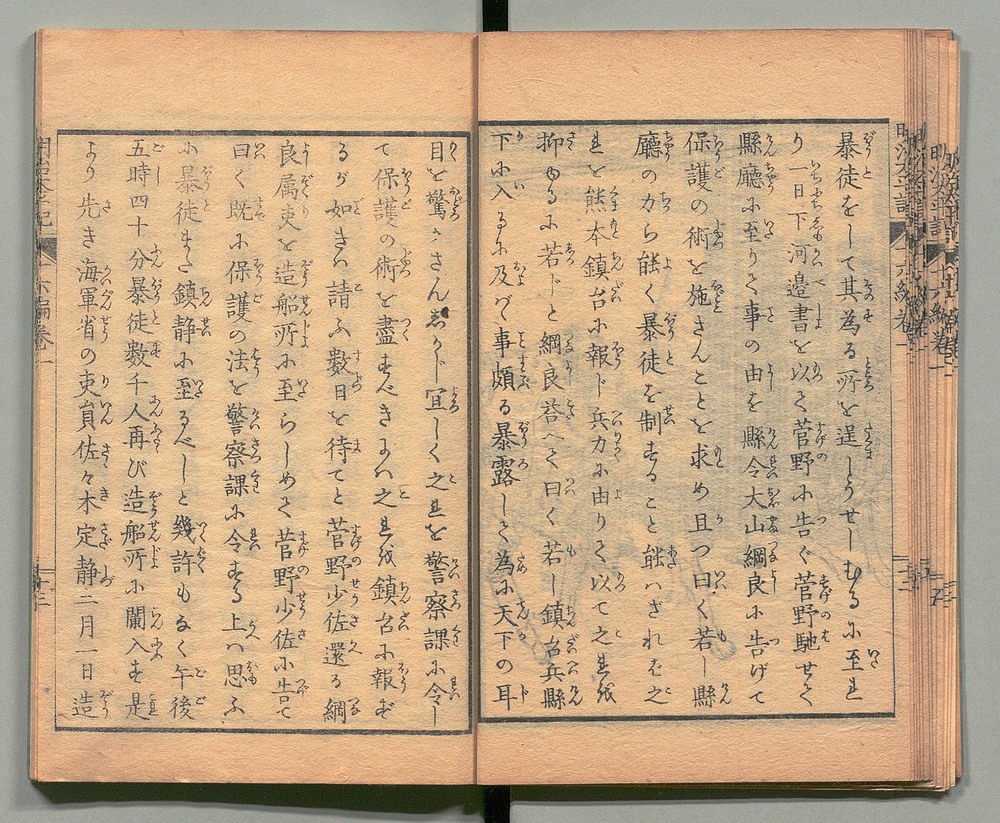 暴徒をして其為る所を逞しうせしむるに至れ
り一日下河邉書を以て菅野に告ぐ菅野馳せて
縣廳に至りて事の由を縣令大山綱良に告げて
保護の術を施さんことを求め且つ曰く若し縣
廳の力ら能く暴徒を制すること能はざれば之
れを熊本鎮台に報じ兵力に由りて以て之れを
抑ゆるに若じと綱良荅へて曰く若し鎮台兵縣
下に入るに及びて事頗る暴露して為に天下の耳
目を驚かさん志かじ宜しく之れを警察課に令し
て保護の術を盡すべきには之れを鎮台に報ず
るが如きは請ふ数日を待てと菅野少佐還る綱
良属吏を造船所に至らしめて菅野少佐に告て
曰く既に保護の法を警察課に令する上へは思ふ
に暴徒また鎮静に至るべしと幾許もなく午後
五時四十分暴徒数千人再び造船所に闌入す是
より先き海軍省の吏員佐々木定静二月一日造
十六編巻一
十三